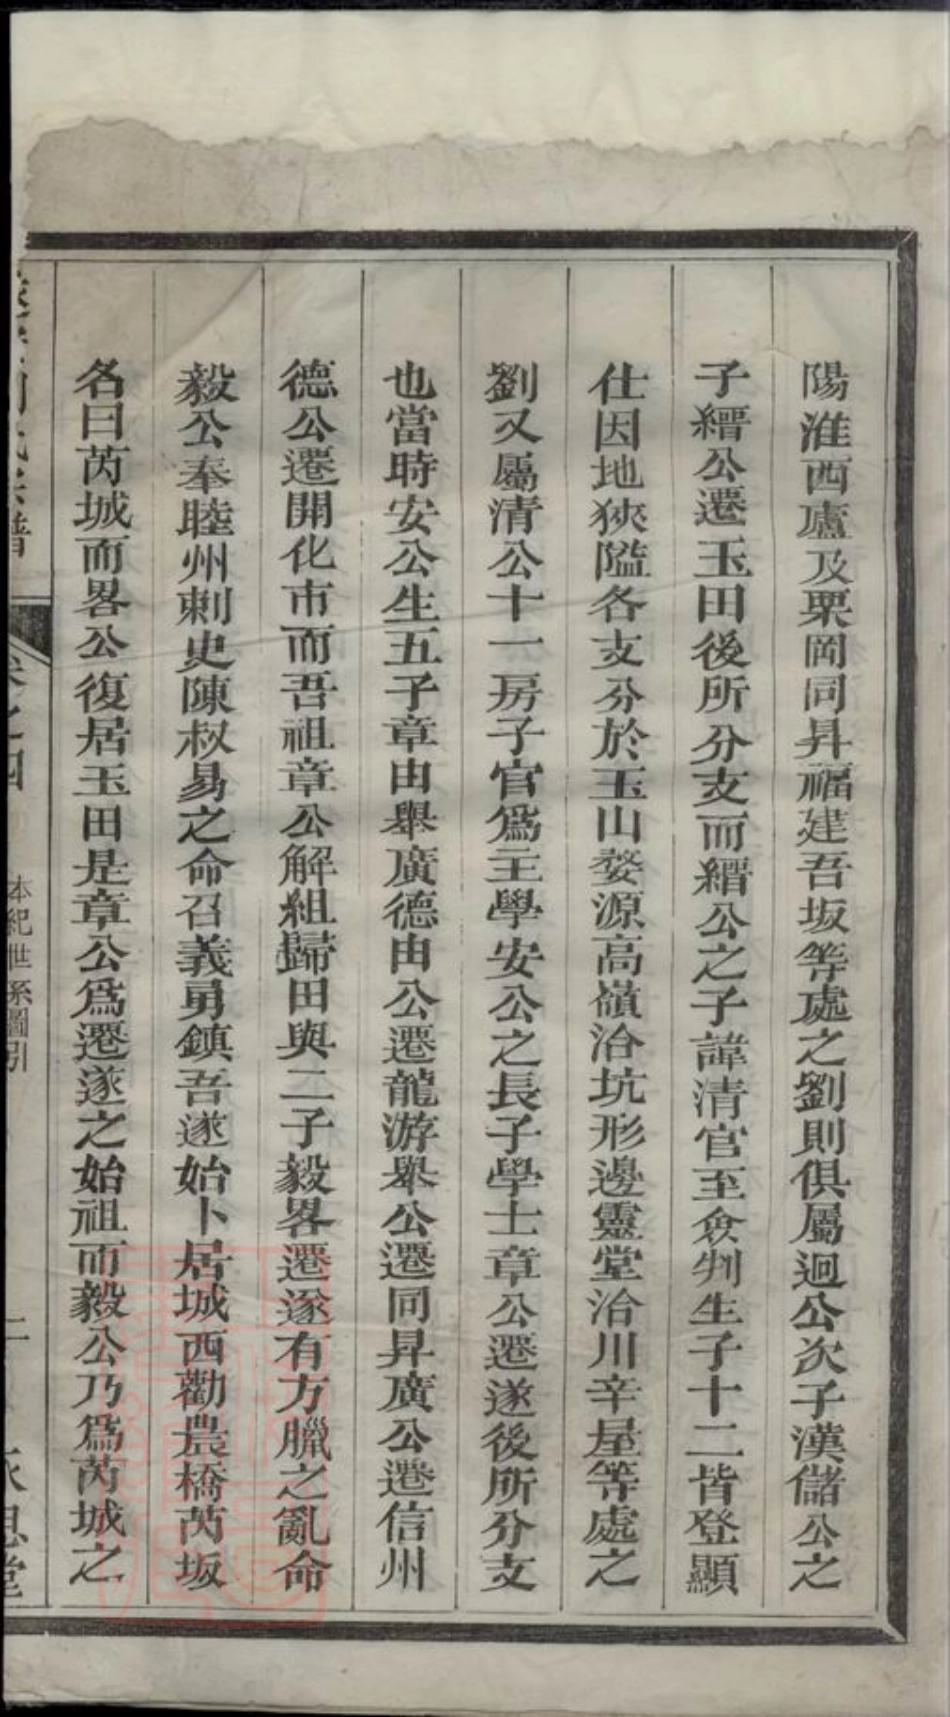 陽淮西廬及栗岡同昇福建吾坂等處之劉則俱屬迥公次子漢儲公之
子縉公遷玉田後所分支而縉公之子諱清官至僉判生子十二皆登顯
仕因地狹隘各支分於玉山婺源高嶺冶坑形邊靈堂冶川辛屋等處之
劉又屬清公十一房子官爲主學安公之長子學士章公遷遂後所分支
也當時安公生五子章由舉廣德由公遷龍游舉公遷同昇廣公遷信州
德公遷開化市而吾祖章公解組歸田與二子毅畧遷遂有方臘之亂命
毅公奉睦州刺史陳叔易之命召義勇鎮吾遂始卜居城西勸農橋芮坂
名曰芮城而畧公復居玉田是章公爲遷遂之始祖而毅公乃爲芮城之
卷之四
本紀世系圖引
二